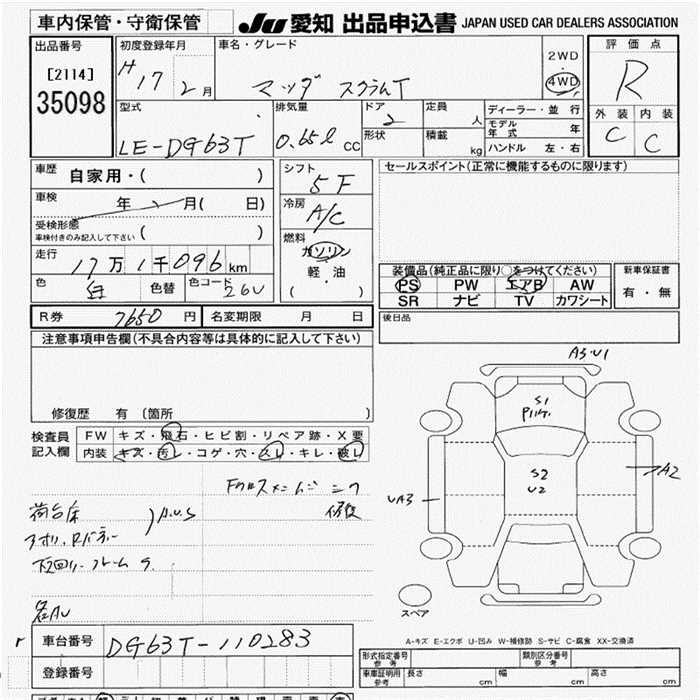 車内保管・守衛保管
JU 愛知 出品申込書 JAPAN USED CAR DEALERS ASSOCIATION
出品番号
[2114]
35098
初度登録年月
H17 2月
車名・グレード
マツダ スクラムT
2WD
・
4WD
評価点
R
外装 内装
C C
型式
LE-DG63T
排気量
0.65l cc
ドア
2
形状
定員
人
積載
kg
ディーラー・並行
モデル年式 年
ハンドル 左・右
車歴
自家用・( )
車検
年 月( 日)
受検形態
車検付きのみ記入して下さい ( )
走行
17万1千096km
色
白
色替
色コード
26U
シフト
5F
冷房
A/C
燃料
ガソリン
軽・油
( )
セールスポイント(正常に機能するものに限ります)
装備品(純正品に限り○をつけてください)
PS PW エアB AW
SR ナビ TV カワシート
新車保証書
有・無
R券 7650円
名変期限 月 日
後日品
注意事項申告欄(不具合内容等は具体的に記入して下さい)
修復歴 有(箇所 )
検査員
記入欄
FW キズ・飛石・ヒビ割・リペア跡・X要
内装 キズ・汚レ・コゲ・穴・スレ・キレ・破レ
荷台床
アオリ、Rバディー
下回リ・フレーム サ
A.U.S
名AU
修復
A3・U1
S1
S2
U2
UA3
A2
スペア
A-キズ E-エクボ U-凹み W-補修跡 S-サビ C-腐食 XX-交換済
車台番号 DG63T-110283
登録番号
形式指定番号
参考
類別区分番号
参考
車庫証明用
参考
長さ cm 幅 cm 高さ cm